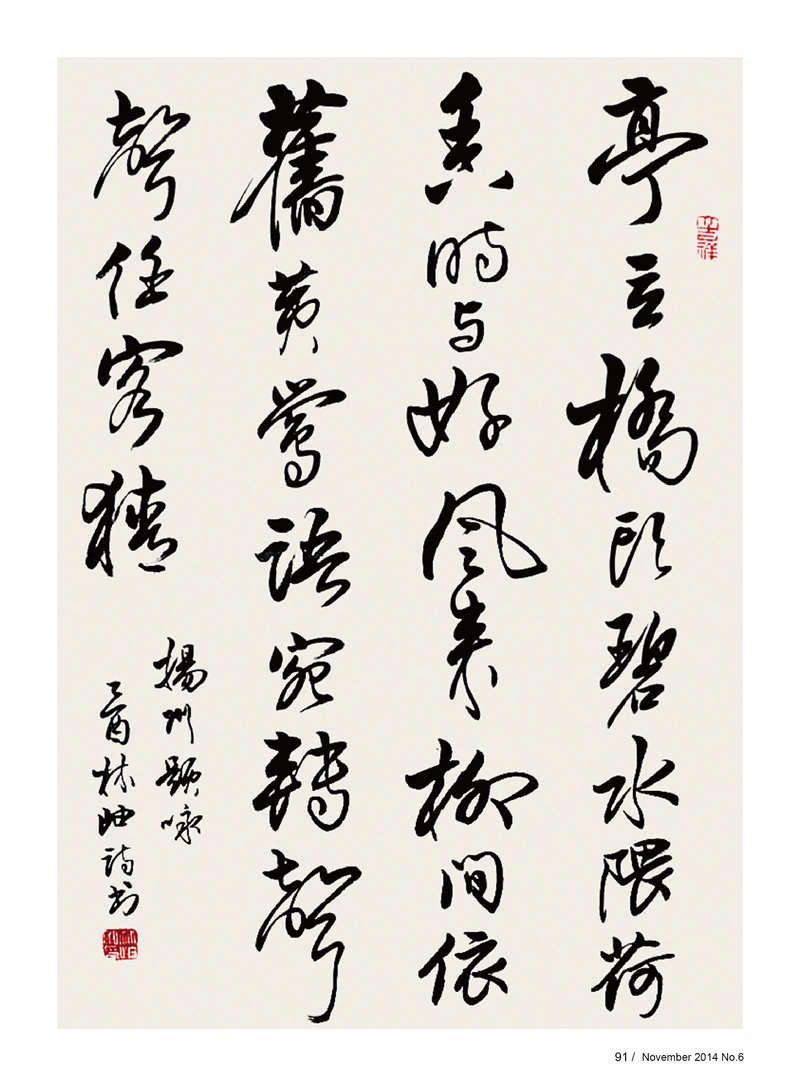 亭立橋頭碧水隈荷
香時与好風来柳間依
舊黄鶯語宛轉聲
聲任客猜
揚州題咏
乙酉林岫詩書
91 / November 2014 No.6